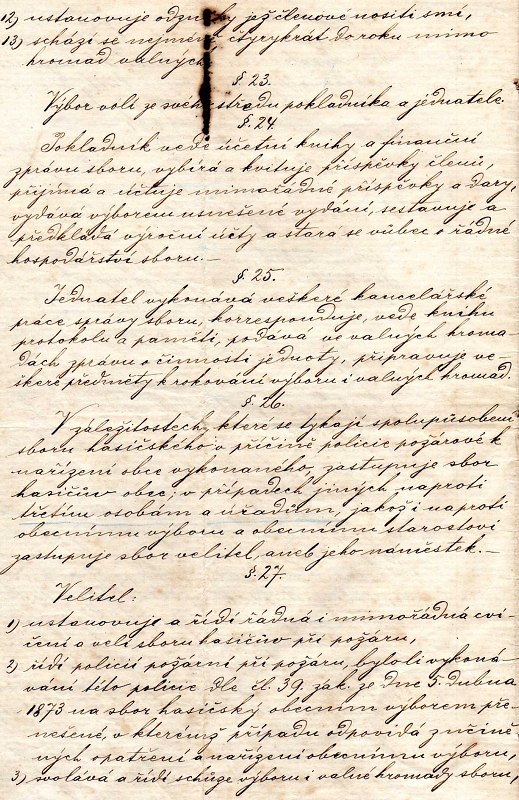 12) ustanovuje odznaky jež členové nositi smí,
13) schází se nejméně čtyrykrát do roku mimo
hromad valných.
§. 23.
Výbor volí ze svého středu pokladníka a jednatele.
§. 24.
Pokladník vede účetní knihy a finanční
zprávu sboru, vybírá a kvituje příspěvky členů,
přijímá a účtuje mimořádné příspěvky a dary,
vydává výborem usnešené vydání, sestavuje a
předkládá výroční účty a stará se vůbec o řádné
hospodářství sboru.—
§. 25.
Jednatel vykonává veškeré kancelářské
práce správy sboru, korresponduje, vede knihu
protokolu a paměti, podává ve valných hroma-
dách zprávu o činnosti jednoty, připravuje ve-
škeré předměty k rokování výboru i valných hromad.
§. 26.
V záležitostech, které se týkají spolupůsobení
sboru hasičského v příčině policie požárové k
nařízení obce vykonaného, zastupuje sbor
hasičův obec; v případech jiných naproti
třetím osobám a úřadům, jakož i naproti
obecnímu výboru a obecnímu starostovi
zastupuje sbor velitel, aneb jeho náměstek.—
§. 27.
Velitel:
1) ustanovuje a řídí řádná i mimořádná cvi-
čení a velí sboru hasičův při požáru,
2) řídí policii požární při požáru, byloli vykoná-
vání této policie dle čl. 39. zák. ze dne 5. dubna
1873 na sbor hasičský obecním výborem pře-
nešené, v kterémž případu odpovídá z učině-
ných opatření a nařízení obecnímu výboru,
3) svolává a řídí schůze výboru i valné hromady sboru,